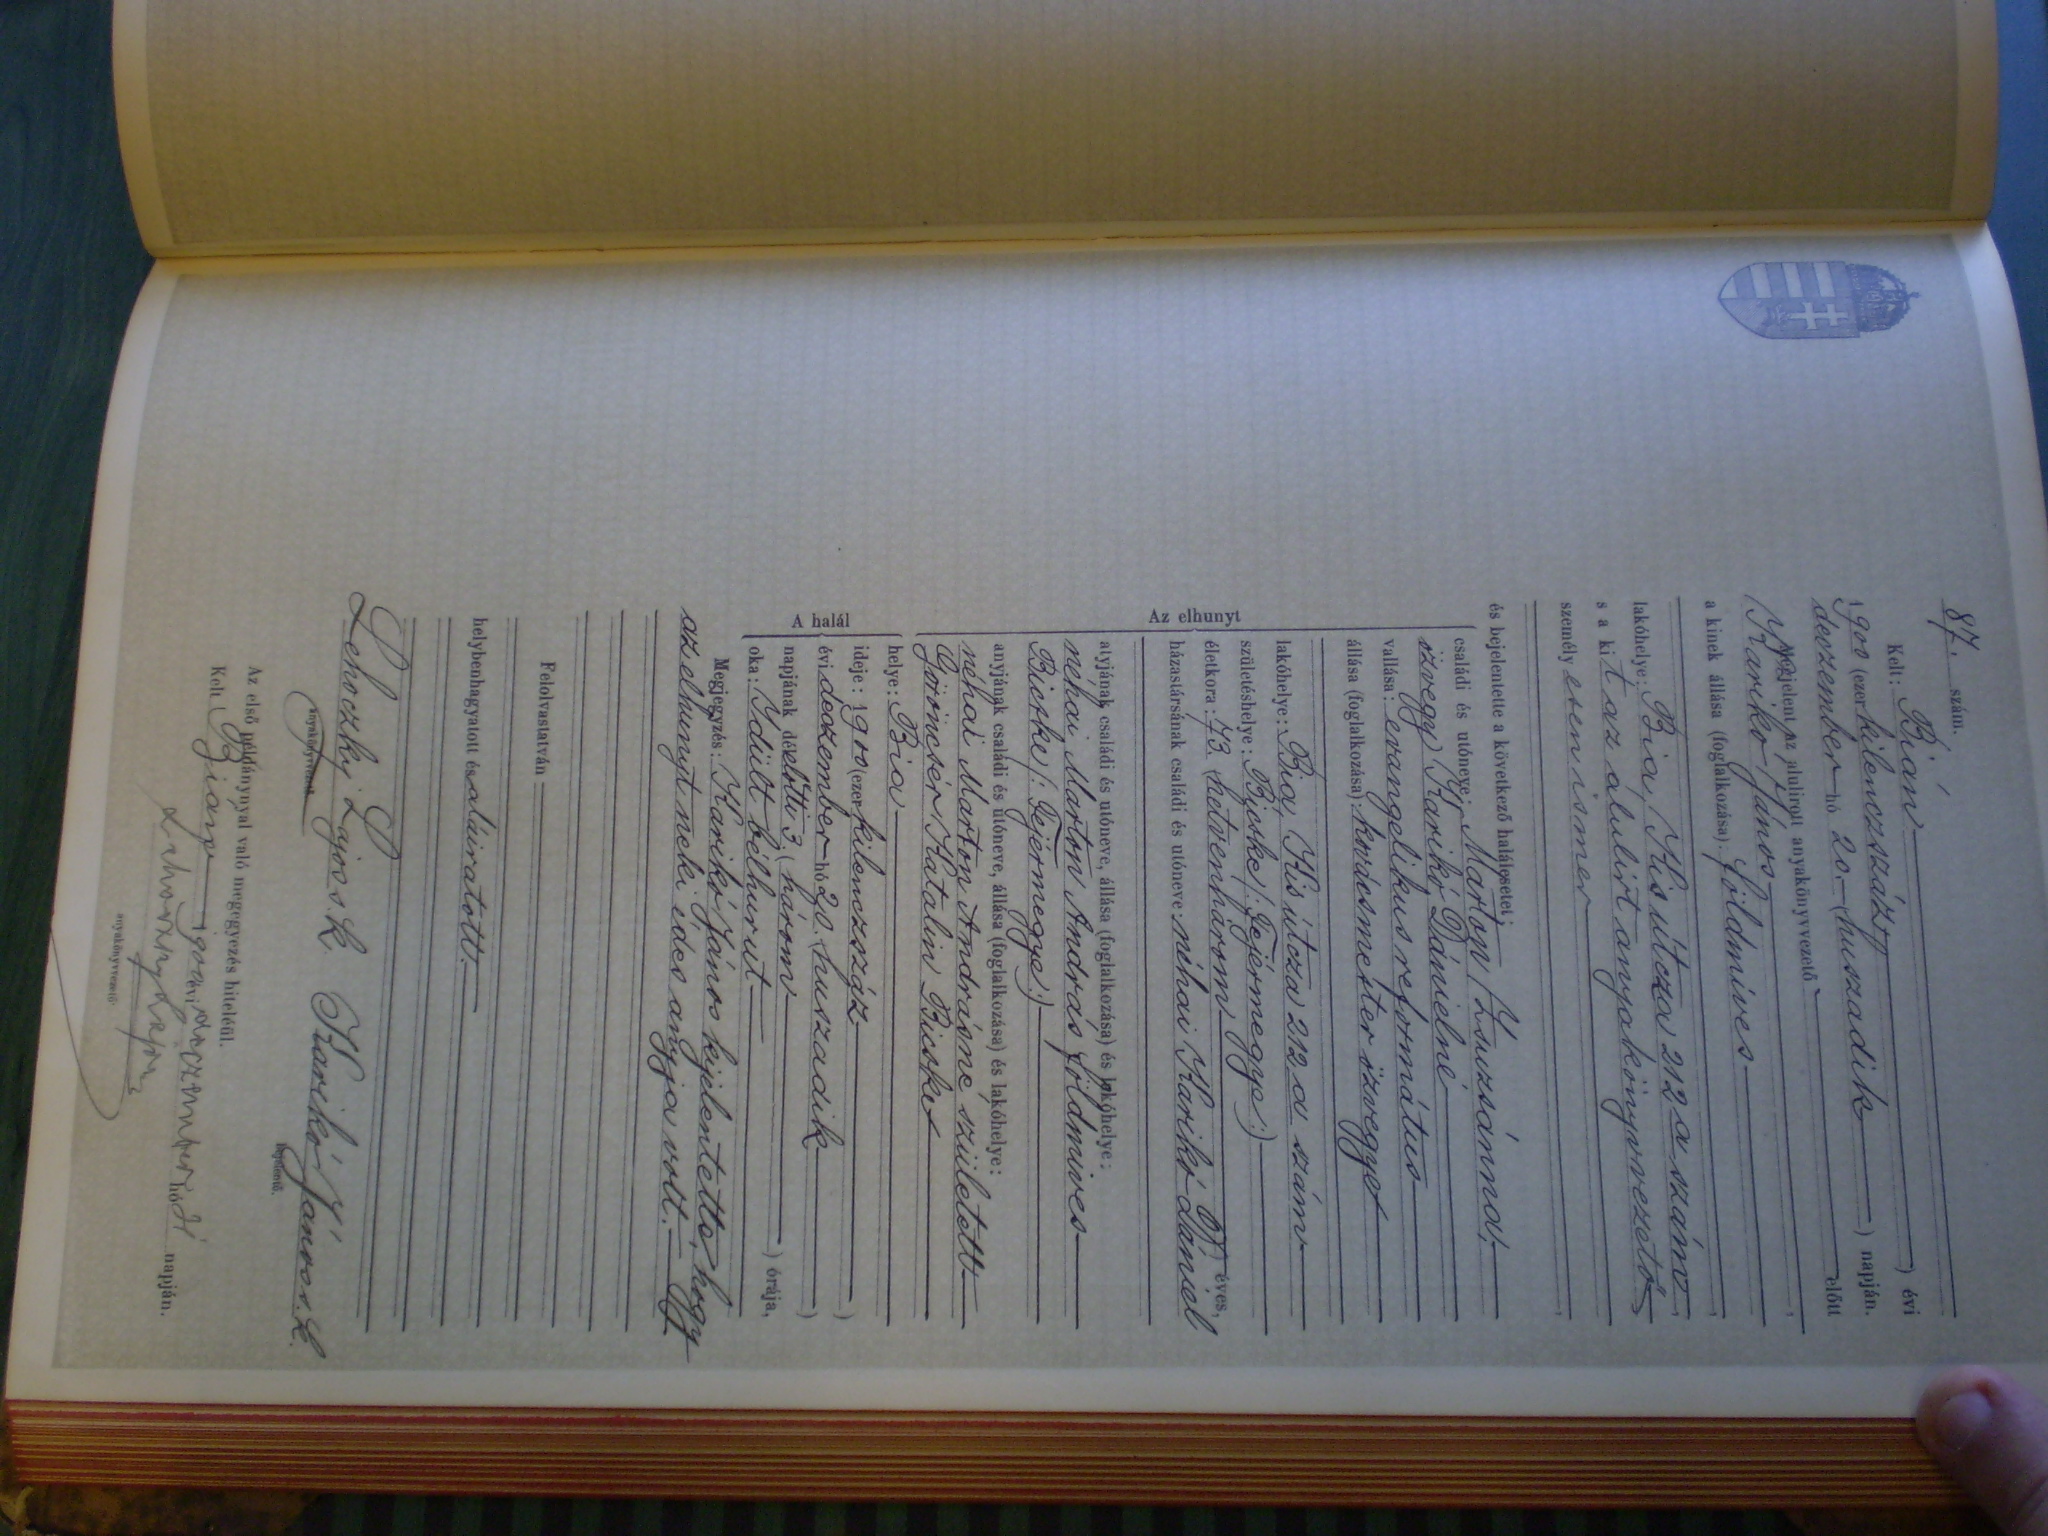 87. szám.
Kelt: Bián évi
1900 (ezer kilenczszáz) évi
deczember hó 20. (huszadik) napján.
Megjelent az alulirott anyakönyvvezető előtt
Karikó János,
a kinek állása (foglalkozása): földmíves
lakóhelye: Bia, Kis útcza 212 a szám,
s a kit az álulirt anyakönyvvezető
személyesen ismer,
és bejelentette a következő halálesetet:
Az elhunyt
családi és utóneve: Marton Zsuzsánna,
özvegy Karikó Dánielné
vallása: evangelikus református
állása (foglalkozása): kovácsmester özvegye
lakóhelye: Bia, Kis útcza 212 a szám
születéshelye: Bicske (: Fejérmegye:)
életkora: 73. (hetvenhárom) éves,
házastársának családi és utóneve: néhai Karikó Dániel
atyjának családi és utóneve, állása (foglalkozása) és lakóhelye:
néhai Marton András földmíves
Bicske (: Fejérmegye:)
anyjának családi és utóneve, állása (foglalkozása) és lakóhelye:
néhai Marton Andrásné született
Göröncsér Katalin Bicske
A halál
helye: Bia
ideje: 1900 (ezer kilenczszáz)
évi deczember hó 20. (huszadik)
napjának délelőtti 3. (három) órája,
oka: Idült bélhurut
Megjegyzés: Karikó János kijelentette, hogy
az elhunyt neki édes anyja volt.
Felolvastatván
helybenhagyatott és aláiratott.
Lehoczky Lajos s. k. Karikó János s. k.
anyakönyvvezető bejelentő.
Az első példánynyal való megegyezés hiteléül.
Kelt Bián 1900 évi deczember hó 31 napján.
Lehoczky Lajos
anyakönyvvezető.